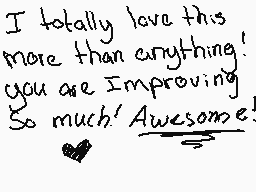 I totally love this
more than anything!
you are Improving
So much! Awesome!